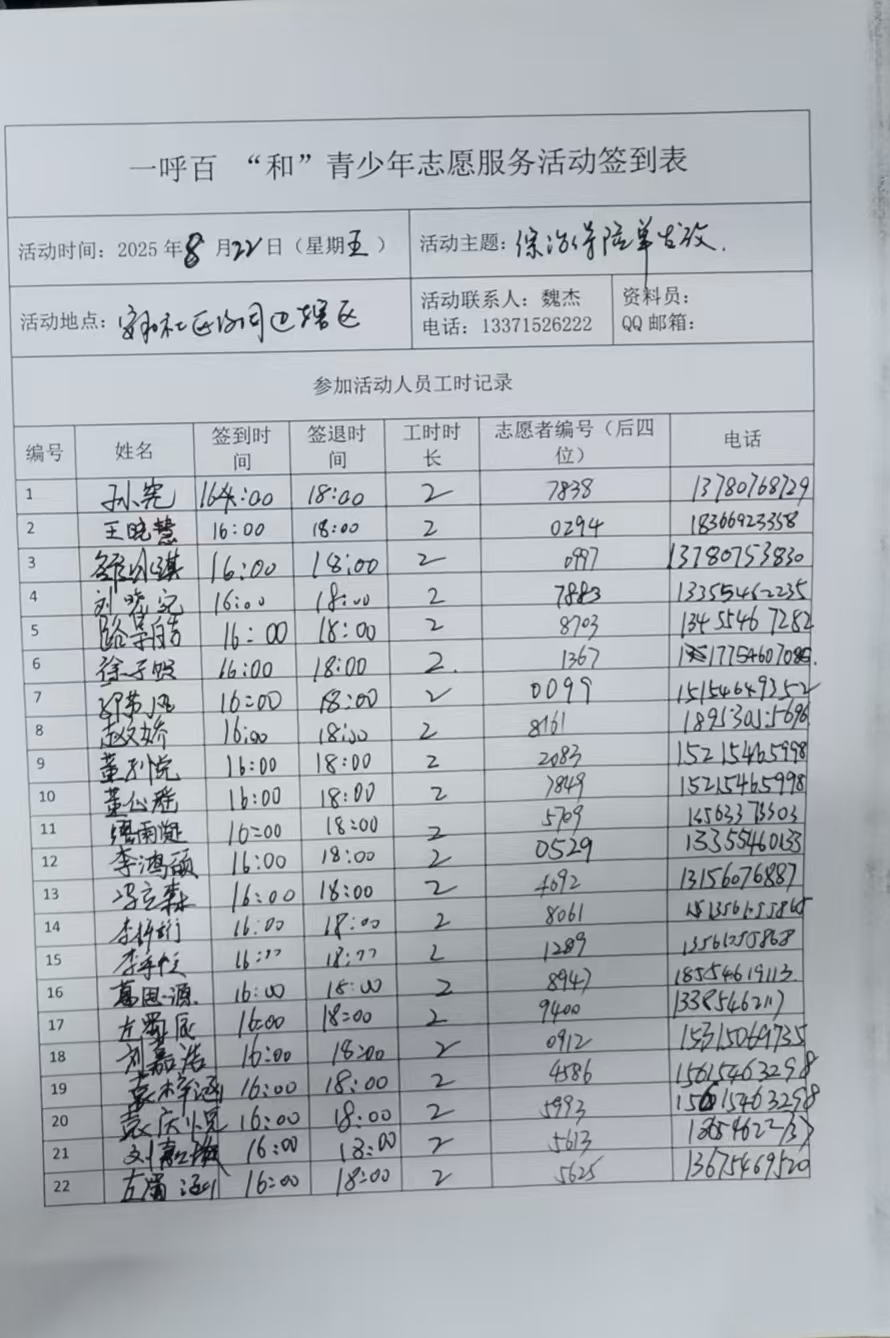 一呼百 “和”青少年志愿服务活动签到表
活动时间：2025年8月22日（星期五） 活动主题：综治保险单发放.
活动地点：安和社区 辖区 活动联系人：魏杰 电话：13371526222 资料员： QQ邮箱：
参加活动人员工时记录
编号 姓名 签到时间 签退时间 工时时长 志愿者编号（后四位） 电话
1 孙宪 16:00 18:00 2 7838 13780768729
2 王晓慧 16:00 18:00 2 0294 18366923358
3 16:00 18:00 2 0997 13780753830
4 刘晓宛 16:00 18:00 2 7883 13355462235
5 路昊皓 16:00 18:00 2 8703 13455467282
6 徐子熙 16:00 18:00 2. 1367 17754607085.
7 16:00 18:00 2 0099 15154649352
8 赵文娇 16:00 18:00 2 8161 18953015696
9 董列悦 16:00 18:00 2 2083 15215465998
10 董弘雅 16:00 18:00 2 7849 15215465998
11 雨凝 16:00 18:00 2 5709 13563373303
12 李鸿硕 16:00 18:00 2 0529 13355460133
13 冯立森 16:00 18:00 2 4692 13156076887
14 16:00 18:00 2 8061
15 16:00 18:00 2 1289
16 葛思源. 16:00 18:00 2 8947 18554619113.
17 左蜀辰 16:00 18:00 2 9400 13385462117
18 刘嘉浩 16:00 18:00 2 0912 15315069735
19 袁梓涵 16:00 18:00 2 4586 15615463298
20 袁庆悦 16:00 18:00 2 5993 15615463298
21 16:00 18:00 2 5613
22 左蜀涵 16:00 18:00 2 5625 13675469520